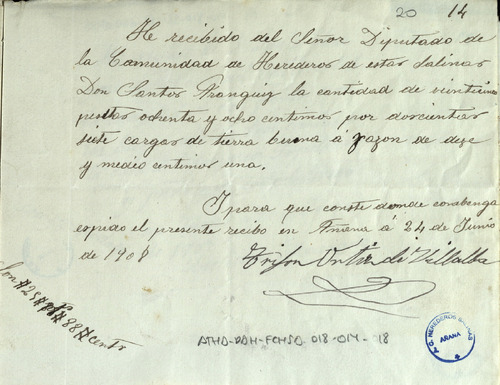 20 14
He recibido del Señor Diputado de
la Comunidad de Herederos de estas Salinas
Don Santos Franguiz la cantidad de veinticinco
pesetas ochenta y ocho centimos por dorcientas
siete cargas de tierra buena á razon de doze
y medio centimos una.
I para que conste domde combenga
espido el presente recibo en Añana á 24 de Junio
de 1909
Trifon Ortiz de Villalba
Son #25# #88# cents
ATHA-DAH-FCHSA 018-014-18
T.G. HEREDEROS SALINAS
AÑANA